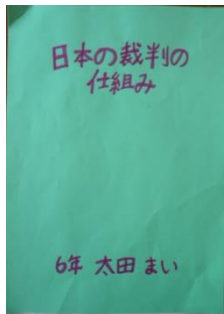 日本の裁判の
仕組み
6年 太田 まい